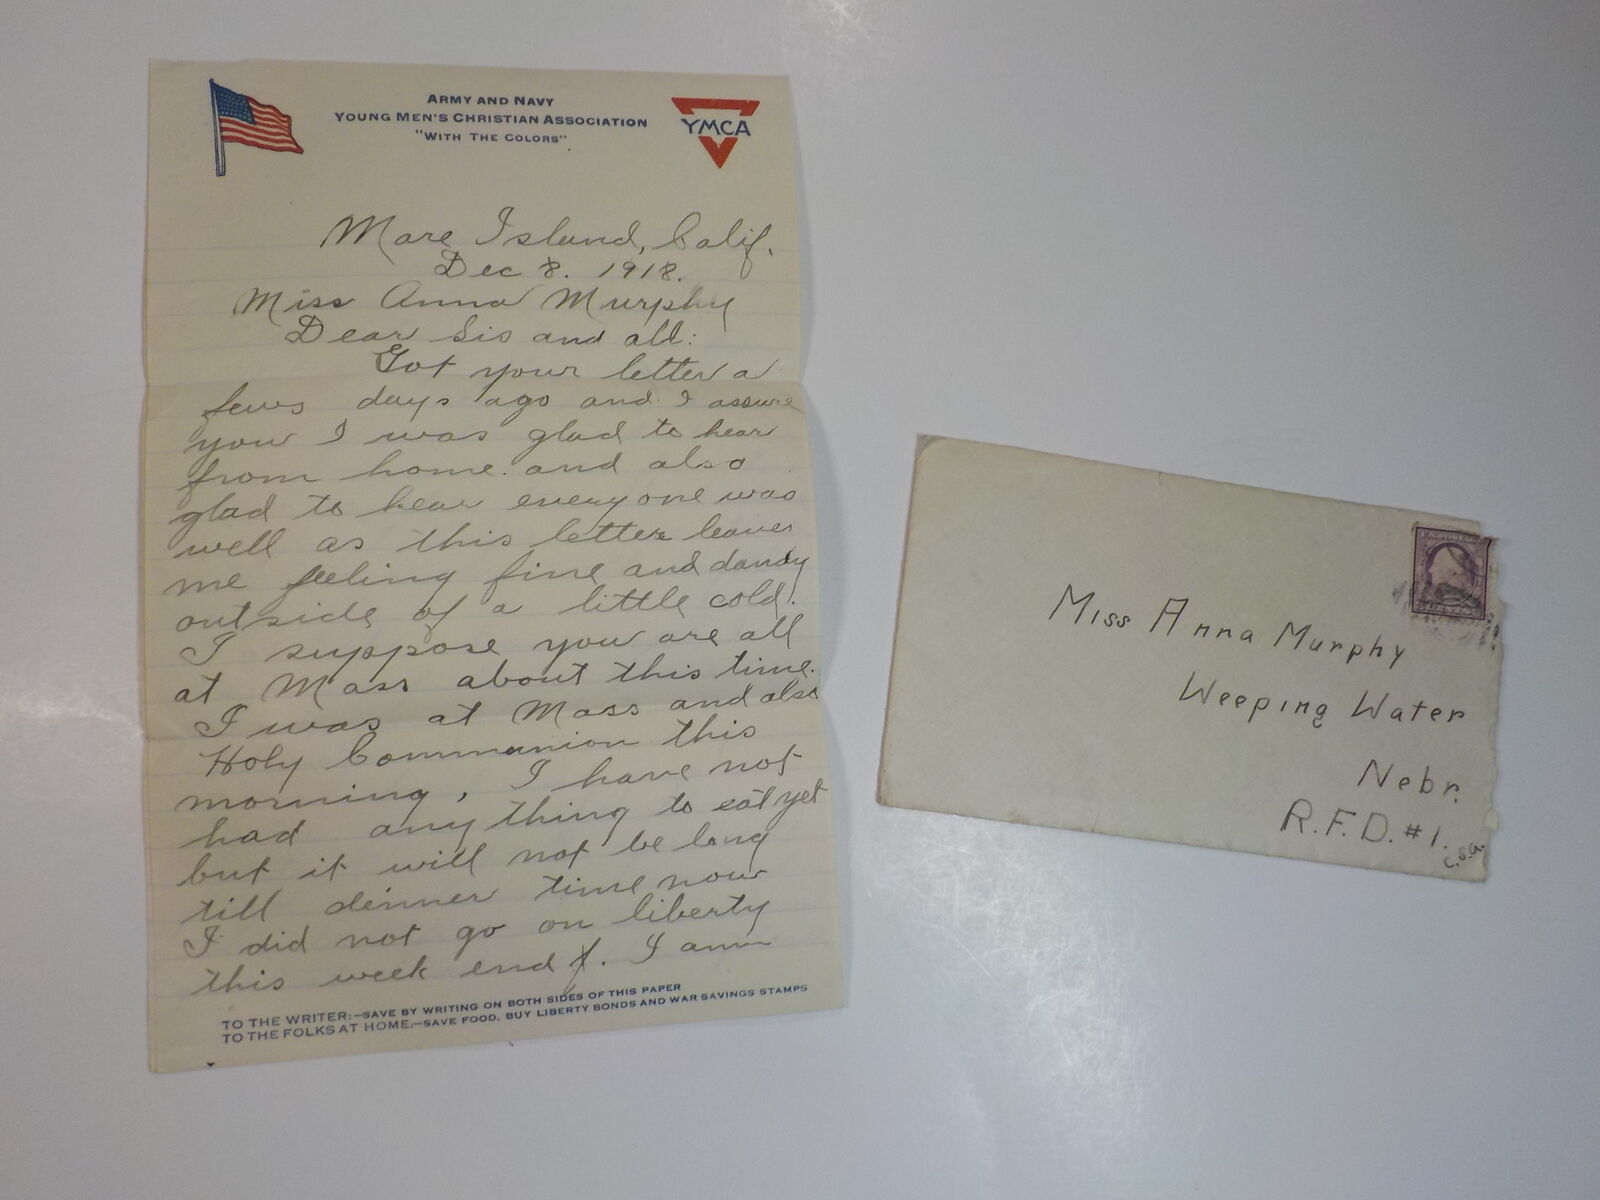 ARMY AND NAVY
YOUNG MEN'S CHRISTIAN ASSOCIATION
"WITH THE COLORS"
YMCA
Mare Island, Calif.
Dec 8. 1918.
Miss Anna Murphy
Dear Sis and all:
Got your letter a
fews days ago and I assure
you I was glad to hear
from home. and also
glad to hear every one was
well as this letter leaves
me feeling fine and dandy
outside of a little cold.
I suppose you are all
at Mass about this time.
I was at Mass and also
Holy Communion this
morning, I have not
had any thing to eat yet
but it will not be long
till dinner time now
I did not go on liberty
this week end. I am
TO THE WRITER:—SAVE BY WRITING ON BOTH SIDES OF THIS PAPER
TO THE FOLKS AT HOME:—SAVE FOOD, BUY LIBERTY BONDS AND WAR SAVINGS STAMPS
U.S. POSTAGE
Miss Anna Murphy
Weeping Water
Nebr.
R.F.D. #1.